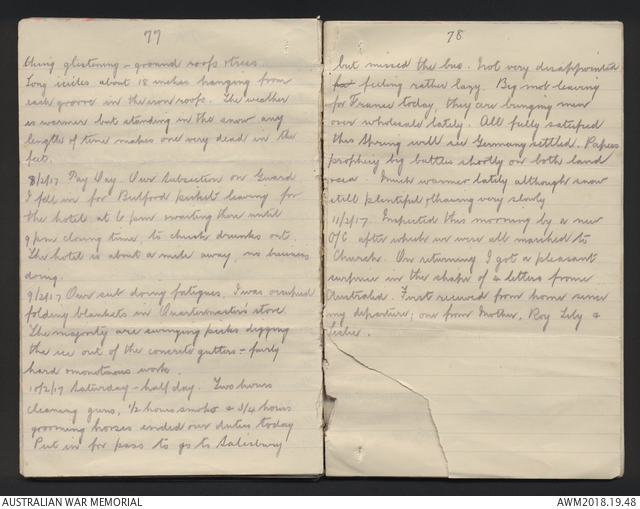 77
thing glistening - ground roofs & trees.
Long icicles about 18 inches hanging from
each groove in the iron roofs. The weather
is warmer but standing in the snow any
length of time makes one very dead in the
feet.
8/2/17 Pay Day. Our Subsection on Guard
I fell in for Bulford picket leaving for
the hotel at 6 pm waiting there until
9 pm closing time, to chuck drunks out.
The hotel is about a mile away, no business
doing.
9/2/17 Our sub doing fatigues, I was occupied
folding blankets in Quartermaster's store.
The majority are swinging picks digging
the ice out of the concrete gutters - fairly
hard monotonous work.
10/2/17 Saturday - half day. Two hours
cleaning guns, 1/2 hours smoke & 3/4 hours
grooming horses ended our duties today
Put in for pass to go to Salisbury
78
but missed the bus. Not very disappointed
feeling rather lazy. Big mob leaving
for France today, they are bringing men
over wholesale lately. All fully satisfied
this Spring will see Germany settled. Papers
prophecy big battles shortly on both land
& sea. Much warmer lately although snow
still plentiful thawing very slowly
11/2/17. Inspected this morning by a new
O/C after which we were all marched to
Church. On returning I got a pleasant
surprise in the shape of 4 letters from
Australia. First received from home since
my departure; one from Mother, Roy Lily &
Leslie.
AUSTRALIAN WAR MEMORIAL
AWM2018.19.48